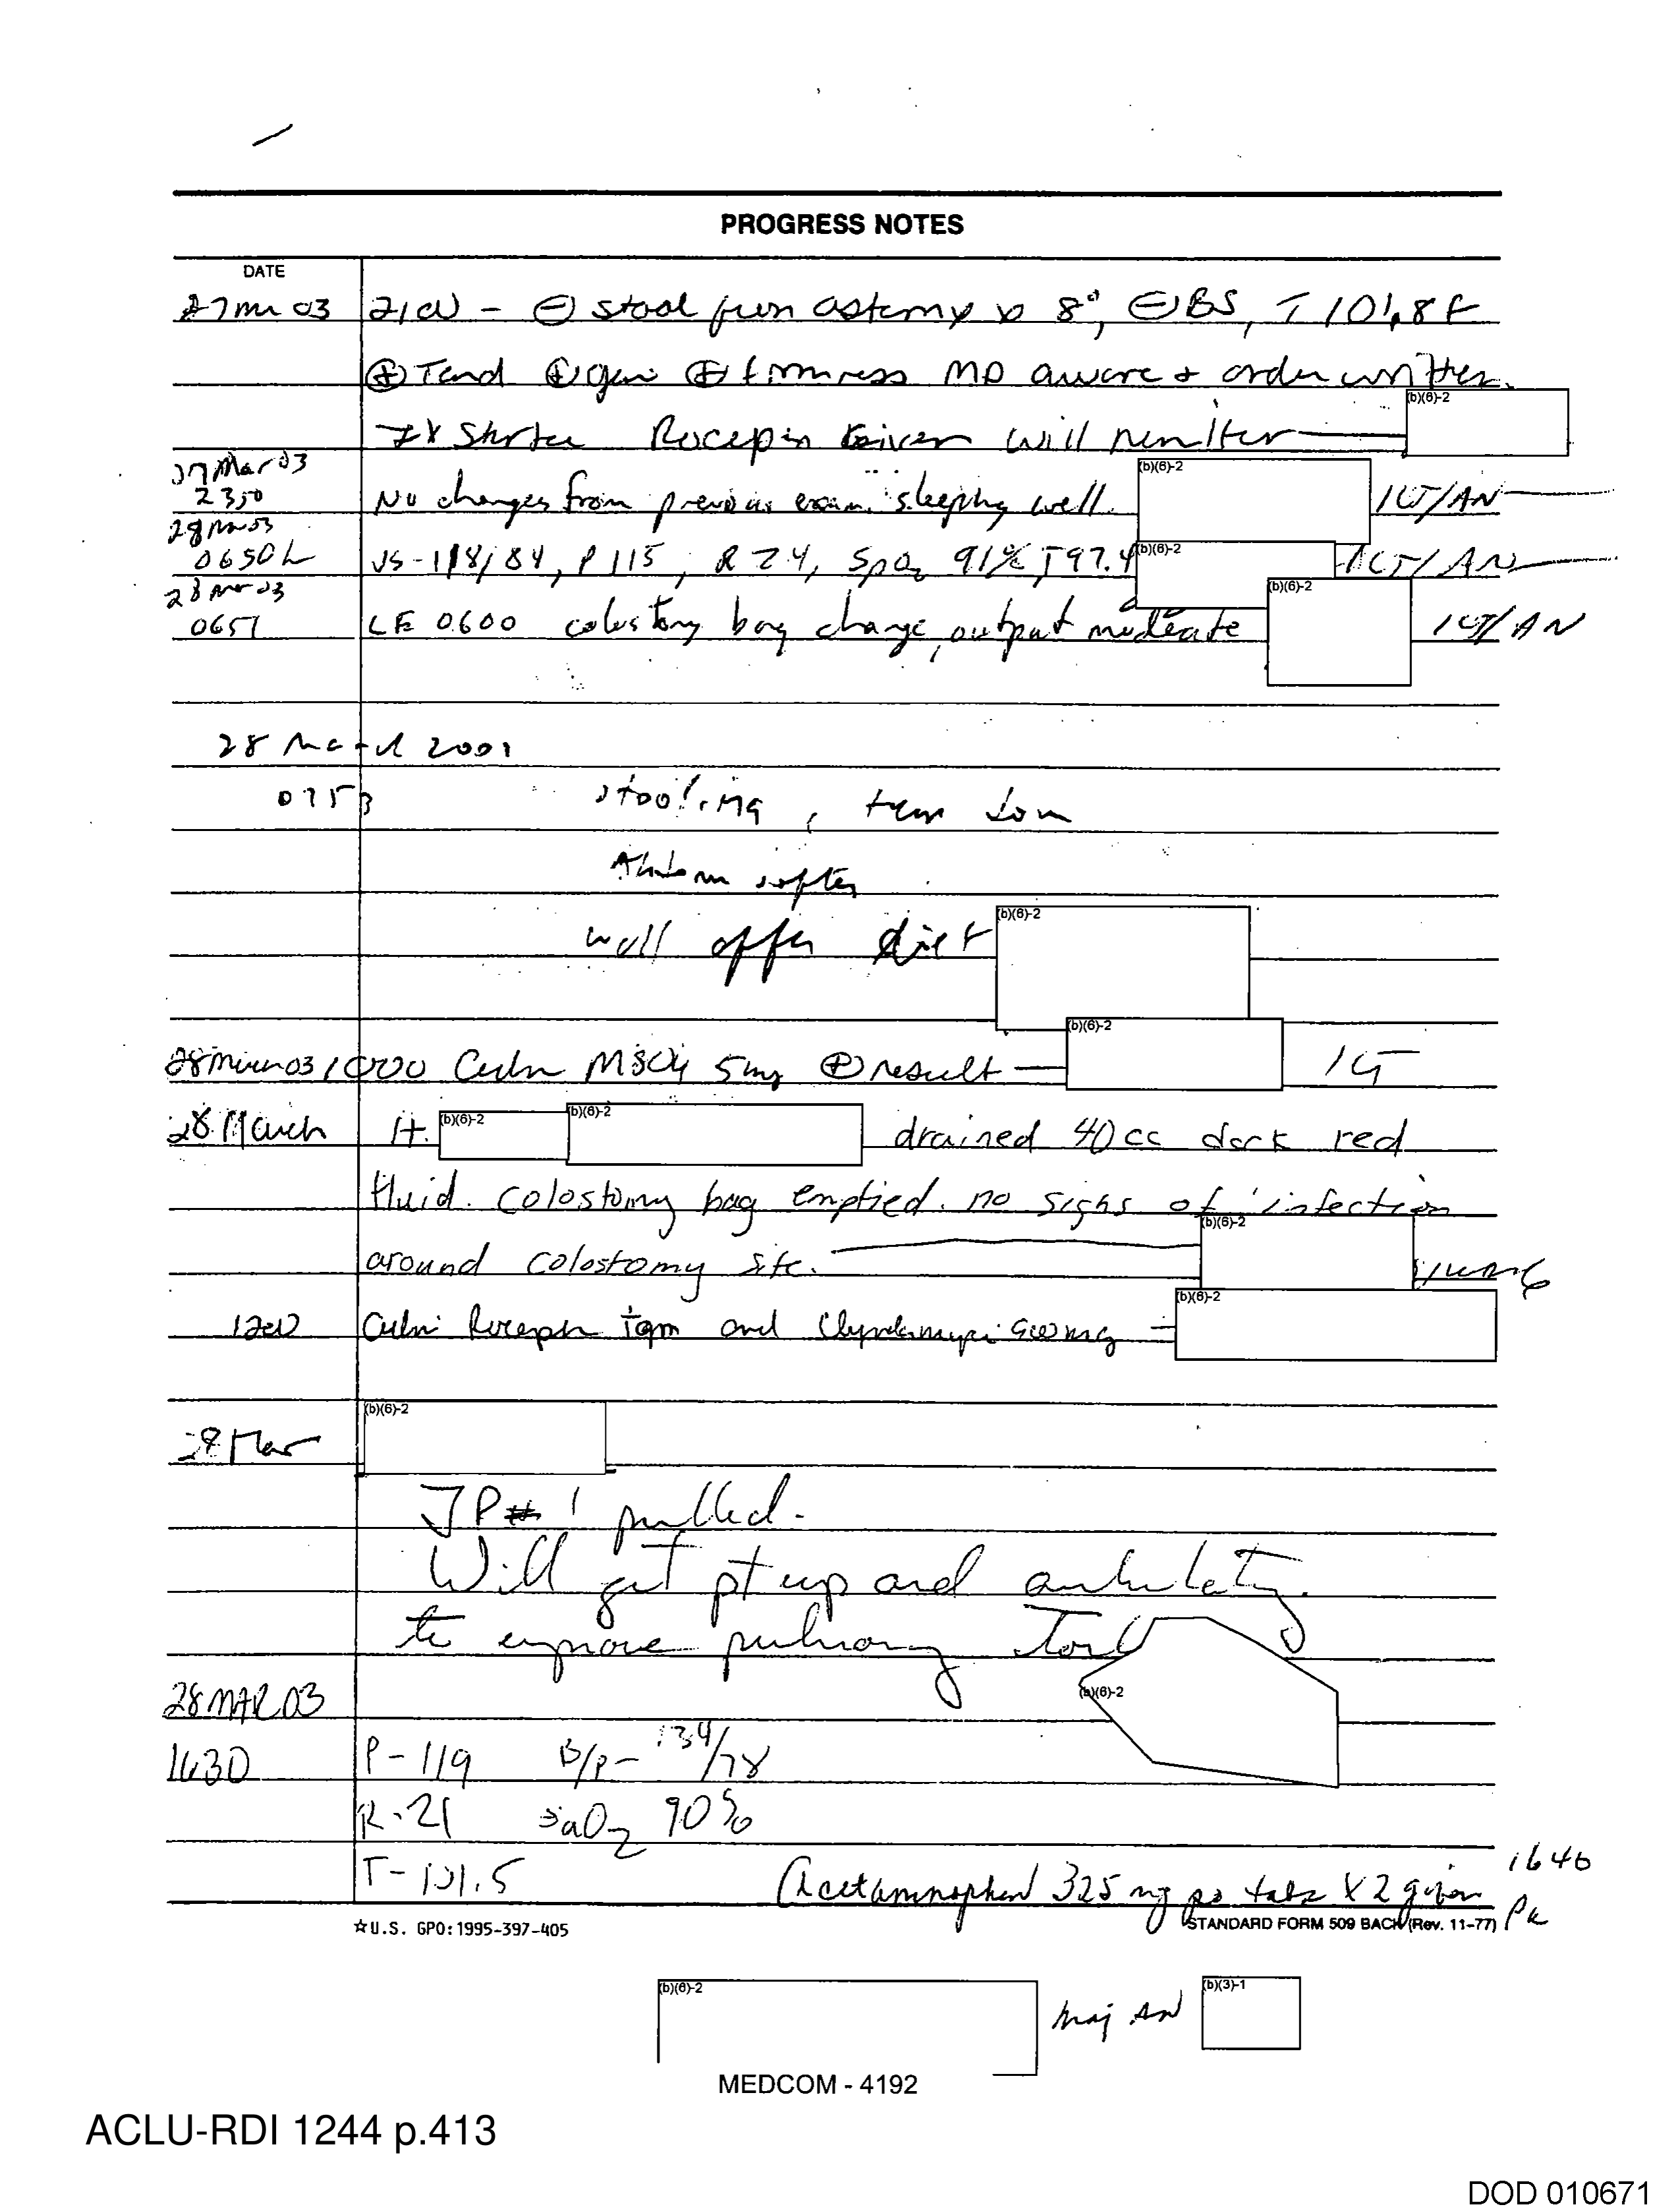 PROGRESS NOTES
DATE
27 Mar 03 2100 - ⊖ stool from ostomy x 8°, ⊖BS, T 101.8 F
⊕ Tend ⊕ ⊕ firmness MD aware + order written.
Rocephin Given will monitor
(b)(6)-2
27 Mar 03
2350 No changes from previous exam. sleeping well.
(b)(6)-2
1LT/AN
28 Mar 03
0650L VS-118/84, P 115, R 24, SpO2 91% T97.4
(b)(6)-2
1LT/AN
28 Mar 03
0651 LE 0600 colostomy bag change, output moderate
(b)(6)-2
1LT/AN
28 March 2001
0753 stooling,
Abdom softer
will offer diet
(b)(6)-2
28 March 03 1000 MSO4 5mg ⊕ result
(b)(6)-2
1LT
28 March
(b)(6)-2
(b)(6)-2
drained 40cc dark red
fluid. colostomy bag emptied. no signs of infection
around colostomy site.
(b)(6)-2
1200 Rocephin 1gm and 900mg
(b)(6)-2
28 Mar
(b)(6)-2
JP#1 pulled.
Will get pt up and ambulating
to improve pulmonary
(b)(6)-2
28 MAR 03
1630 P-119 B/P- 134/78
R-21 SaO2 90%
T-101.5
Acetaminophen 325 mg po tabs X 2 given 1640
☆U.S. GPO: 1995-397-405
STANDARD FORM 509 BACK (Rev. 11-77)
(b)(6)-2
Maj AN
(b)(3)-1
MEDCOM - 4192
ACLU-RDI 1244 p.413
DOD 010671